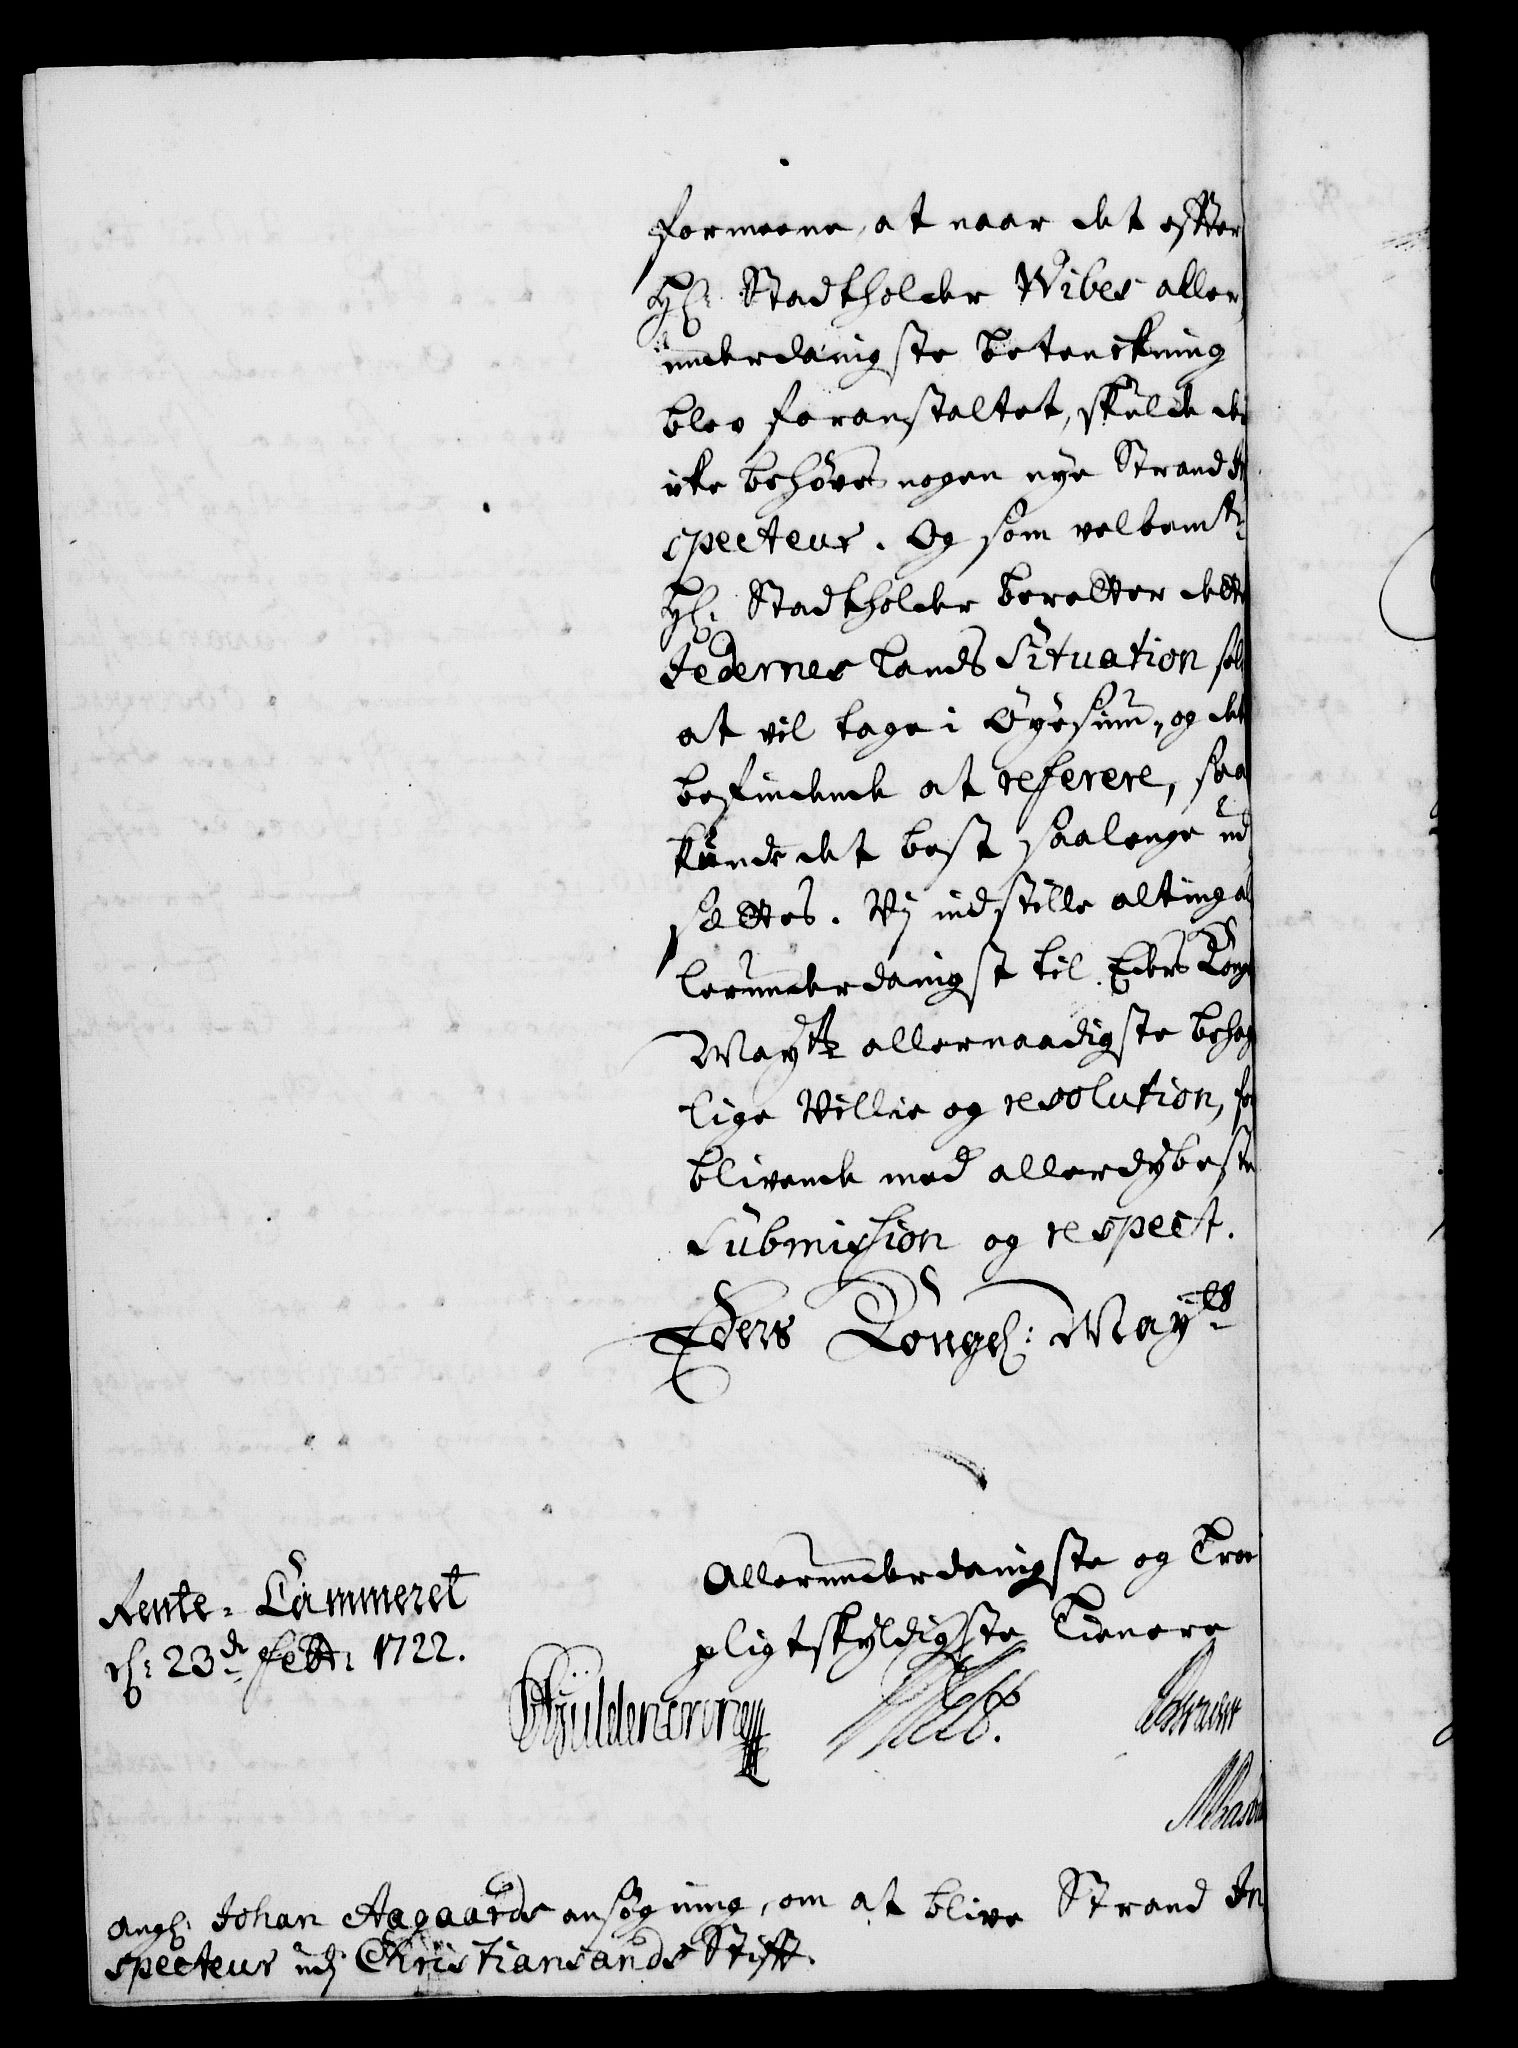 formeene, at naar det effter
Hr: Stadtholder Wibes aller,
underdanigste betenckning
blev foranstaltet, skulde de
icke behøves nogen nye Strand In
specteur. Og som velbemte
Hr: Stadtholder beretter dette
Jedernes Lands Situation self
at vil tage i Øyesiun, og det
befindende at referere, saa
kunde det best saalenge ud
settes. Vj indstille alting al
lerunderdanigst til Eders Kongl
Mayts allernaadigste behag
lige Villie og resolution, for
blivende med allerdybeste
Submission og respect.
Eders Kongl: Mayts
Allerunderdanigste og Troe
pligtskyldigste Tienere
Rente-Cammeret
d: 23de Febr: 1722.
Gyldencrone
angl: Johan Aagaards ansøgning, om at blive Strand In
specteur udj Christiansands Stifft.